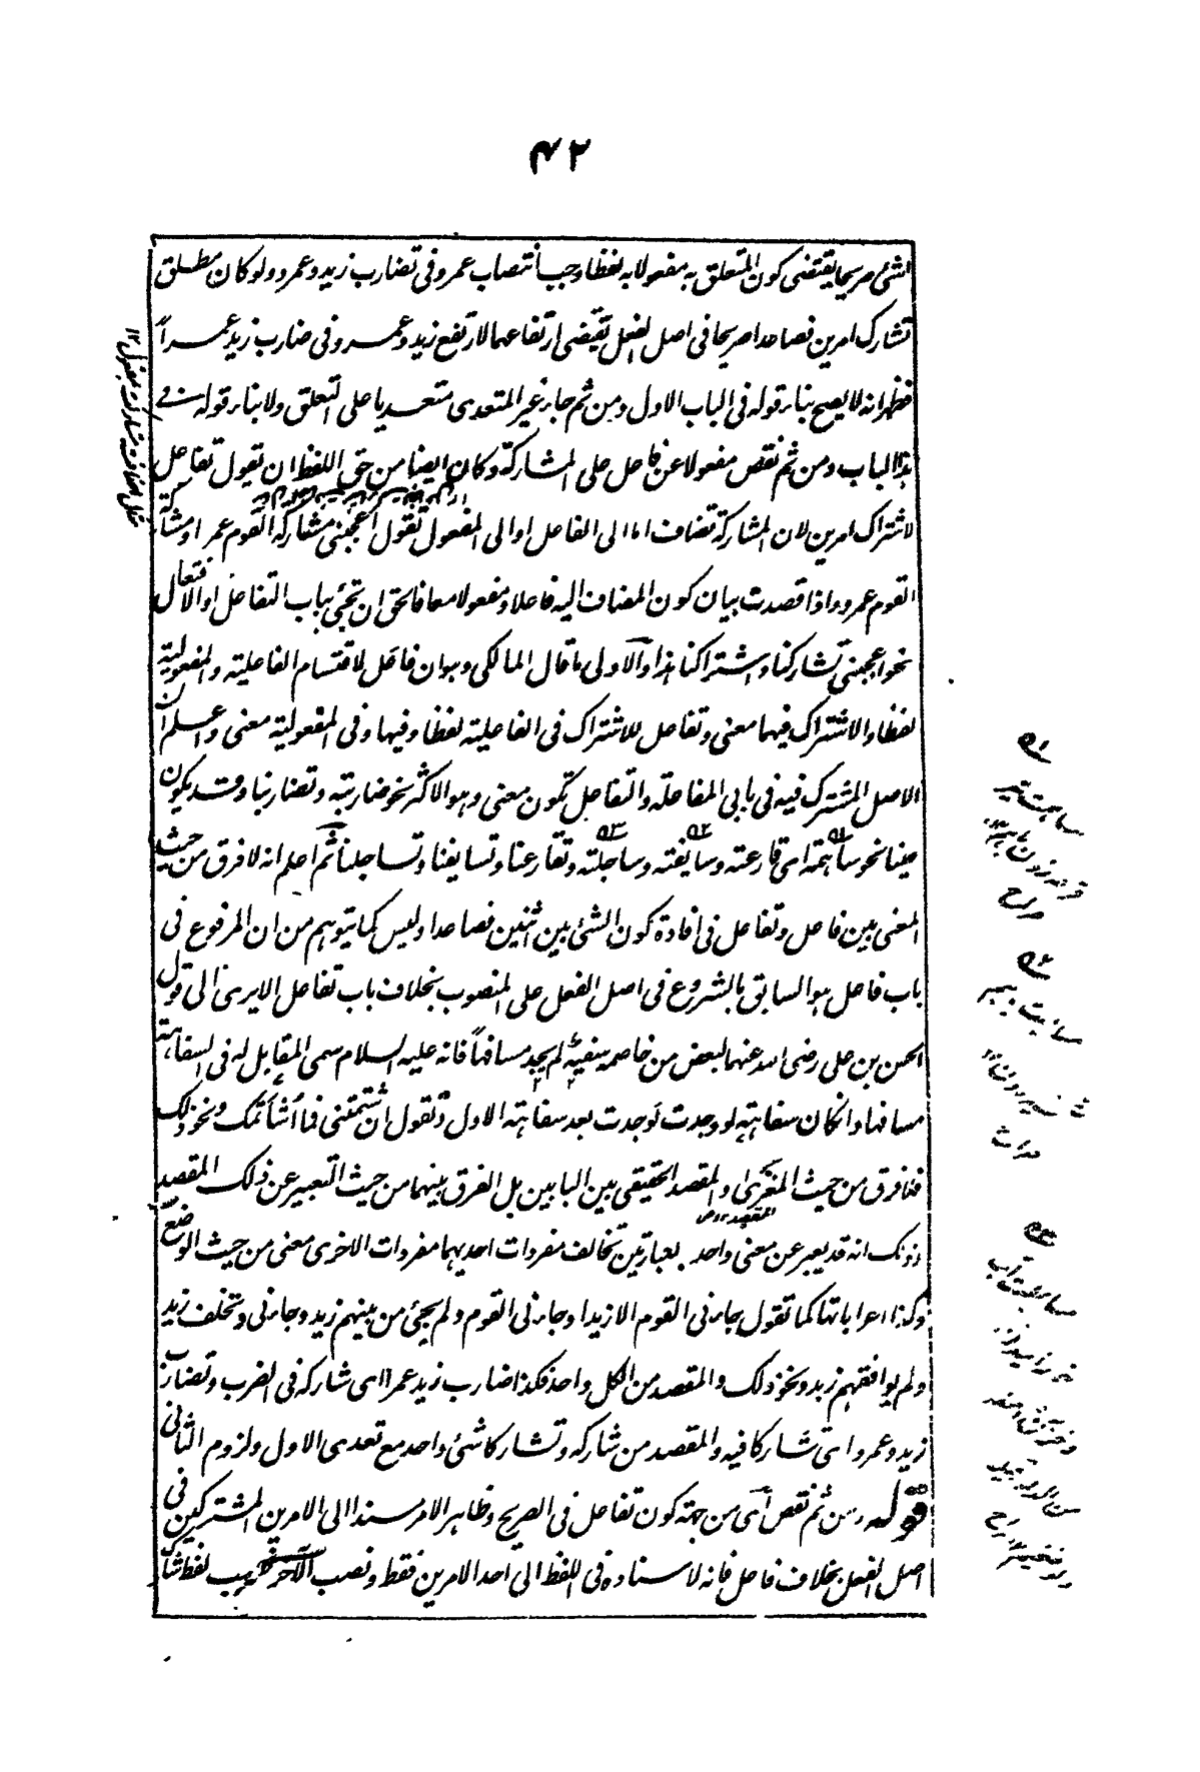 ۴۲
لشئ صريحا يقتضى كون المتعلق به مفعولا به لفظا وجب انتصاب عمرو فى تضارب زيد وعمرو ولو كان مطلق
تشارك امرين فصاعدا صريحا فى اصل الفعل يقتضى ارتفاعهما لارتفع زيد وعمرو فى ضارب زيد عمرا
فظهر انه لا يصح بناء قوله فى الباب الاول ومن ثم جاء غير المتعدى متعديا على التعلق ولا بناء قوله فى
هذا الباب ومن ثم نقص مفعولا عن فاعل على المشاركة وكان ايضا من حق اللفظ ان تقول تفاعل
لاشتراك امرين لان المشاركة تضاف اما الى الفاعل او الى المفعول تقول اعجبنى مشاركة القوم عمرا ومشاركة
القوم عمرو واذا قصدت بيان كون المضاف اليه فاعلا ومفعولا معا فالحق ان تجئ بباب التفاعل او الافتعال
نحو اعجبنى تشاركنا واشتراكنا هذا والاولى ما قال المالكى وهو ان فاعل لاقتسام الفاعلية والمفعولية
لفظا والاشتراك فيهما معنى وتفاعل للاشتراك فى الفاعلية لفظا وفيها وفى المفعولية معنى واعلم ان
الاصل المشترك فيه فى بابى المفاعلة والتفاعل يكون معنى وهو الاكثر نحو ضاربته وتضاربنا وقد يكون
عينا نحو ساهمته اى قارعته وسايفته وساجلته وتقارعنا وتسايفنا وتساجلنا ثم اعلم انه لا فرق من حيث
المعنى بين فاعل وتفاعل فى افادة كون الشئ بين اثنين فصاعدا وليس كما يتوهم من ان المرفوع فى
باب فاعل هو السابق بالشروع فى اصل الفعل على المنصوب بخلاف باب تفاعل الا يرى الى قول
الحسن بن على رضى الله عنهما لبعض من خاصمه سفيه لم يجد مسافها فانه عليه السلام سمى المقابل له فى السفاهة
مسافها وان كان سفاهته لو وجدت لوجدت بعد سفاهته الاول وتقول ان شتمتنى فما أشاتمك ونحو ذلك
فلا فرق من حيث المغزى والمقصد الحقيقى بين البابين بل الفرق بينهما من حيث التعبير عن ذلك المقصد
وذلك انه قد يعبر عن معنى واحد بعبارتين تخالف مفردات احديهما مفردات الاخرى معنى من حيث الوضع
وكذا اعراباتها كما تقول جاءنى القوم الا زيدا وجاءنى القوم ولم يجئ من بينهم زيد وجاءنى وتخلف زيد
ولم يوافقهم زيد ونحو ذلك والمقصد من الكل واحد فكذا ضارب زيد عمرا اى شاركه فى الضرب وتضارب
زيد وعمرو اى تشاركا فيه والمقصد من شاركه وتشاركا شئ واحد مع تعدى الاول ولزوم الثانى
قوله ومن ثم نقص اى من جهة كون تفاعل فى الصريح وظاهر الامر مسندا الى الامرين المشتركين فى
اصل الفعل بخلاف فاعل فانه لاسناده فى اللفظ الى احد الامرين فقط ونصب الآخر لفظ شا